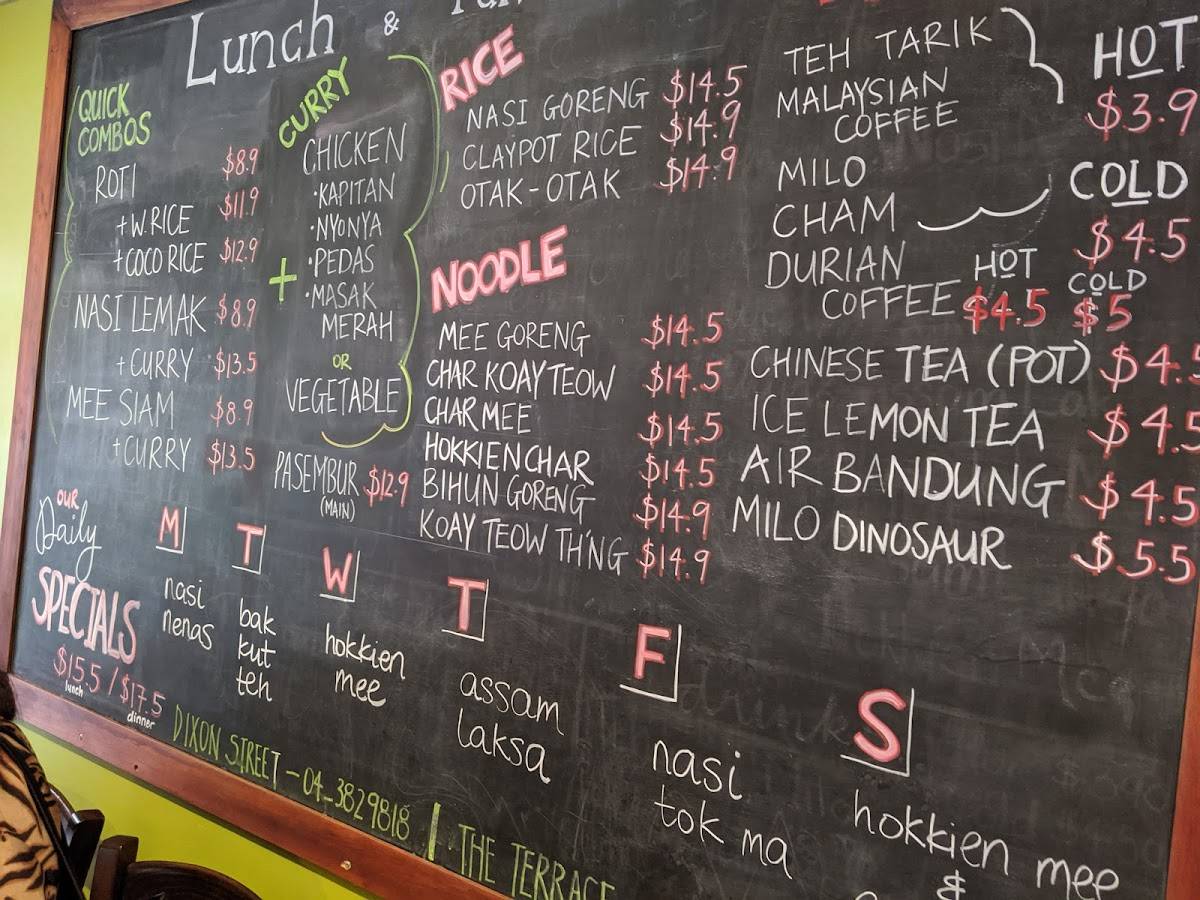 LUNCH &
QUICK
COMBOS
ROTI $8.9
+ W.RICE $11.9
+ COCO RICE $12.9
NASI LEMAK $8.9
+ CURRY $13.5
MEE SIAM $8.9
+ CURRY $13.5
+
CURRY
CHICKEN
·KAPITAN
·NYONYA
·PEDAS
·MASAK
MERAH
OR
VEGETABLE
PASEMBUR $12.9
(MAIN)
RICE
NASI GORENG $14.5
CLAYPOT RICE $14.9
OTAK-OTAK $14.9
NOODLE
MEE GORENG $14.5
CHAR KOAY TEOW $14.5
CHAR MEE $14.5
HOKKIEN CHAR $14.5
BIHUN GORENG $14.9
KOAY TEOW TH'NG $14.9
TEH TARIK
MALAYSIAN
COFFEE
HOT
$3.9
MILO
CHAM
COLD
$4.5
DURIAN
COFFEE
HOT $4.5
COLD $5
CHINESE TEA (POT) $4.5
ICE LEMON TEA $4.5
AIR BANDUNG $4.5
MILO DINOSAUR $5.5
OUR
Daily
SPECIALS
$15.5 / $17.5
lunch dinner
M
nasi
nenas
T
bak
kut
teh
W
hokkien
mee
T
assam
laksa
F
nasi
tok ma
S
hokkien mee
&
DIXON STREET - 04-3829818 / THE TERRACE